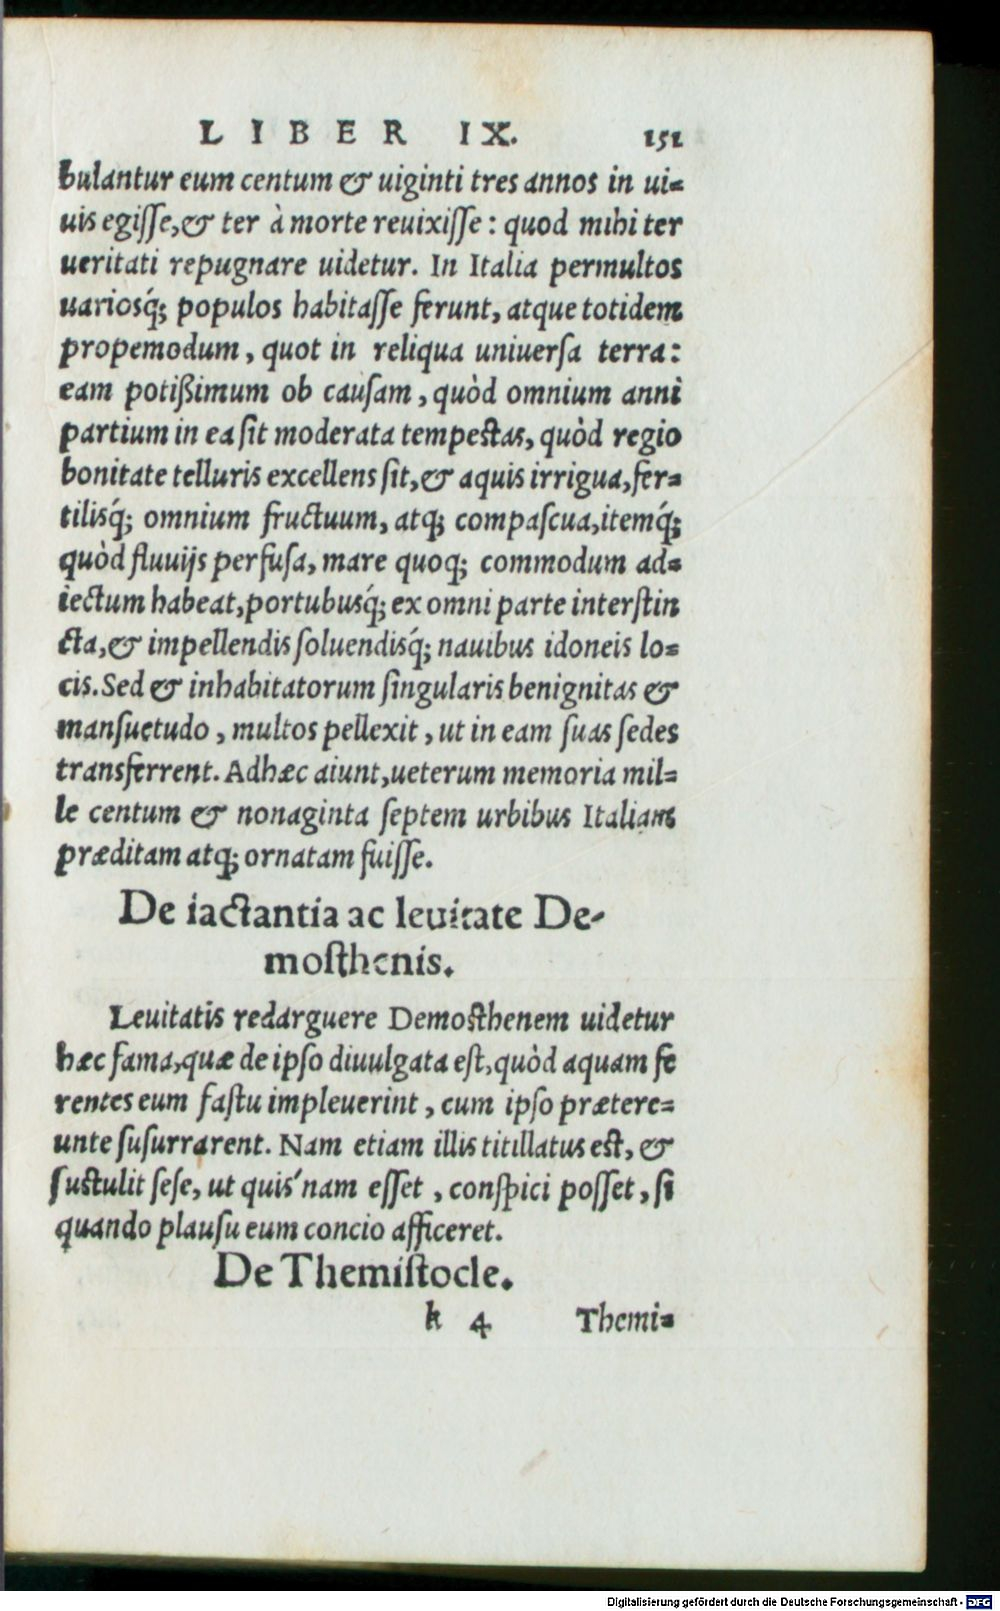 LIBER IX. 151
bulantur eum centum & uiginti tres annos in ui-
uis egisse, & ter à morte reuixisse: quod mihi ter
ueritati repugnare uidetur. In Italia permultos
uariosq́; populos habitasse ferunt, atque totidem
propemodum, quot in reliqua uniuersa terra:
eam potißimum ob causam, quòd omnium anni
partium in ea sit moderata tempestas, quòd regio
bonitate telluris excellens sit, & aquis irrigua, fer-
tilisq́; omnium fructuum, atq; compascua, itemq́;
quòd fluuijs perfusa, mare quoq; commodum ad-
iectum habeat, portubusq́; ex omni parte interstin
cta, & impellendis soluendisq́; nauibus idoneis lo-
cis. Sed & inhabitatorum singularis benignitas &
mansuetudo, multos pellexit, ut in eam suas sedes
transferrent. Adhæc aiunt, ueterum memoria mil-
le centum & nonaginta septem urbibus Italiam
præditam atq; ornatam fuisse.
De iactantia ac leuitate De-
mosthenis.
Leuitatis redarguere Demosthenem uidetur
hæc fama, quæ de ipso diuulgata est, quòd aquam fe
rentes eum fastu impleuerint, cum ipso prætere-
unte susurrarent. Nam etiam illis titillatus est, &
sustulit sese, ut quis'nam esset, conspici posset, si
quando plausu eum concio afficeret.
De Themistocle.
k 4 Themi-
Digitalisierung gefördert durch die Deutsche Forschungsgemeinschaft - DFG